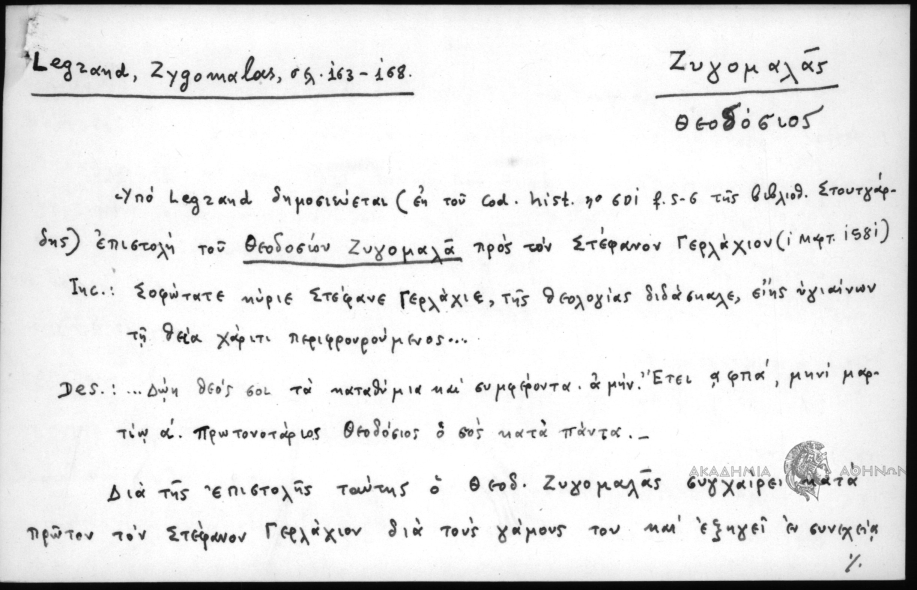 Legrand, Zygomalas, σελ. 163-168.
Ζυγομαλᾶς
Θεοδόσιος
Ὑπό Legrand δημοσιεύεται (ἐκ τοῦ Cod. hist. nο 601 f. 5-6 τῆς βιβλιοθ. Στουτγάρ-
δης) ἐπιστολή τοῦ Θεοδοσίου Ζυγομαλᾶ πρός τόν Στέφανον Γερλάχιον (1 Μαρτ. 1581)
Inc.: Σοφώτατε κύριε Στέφανε Γερλάχιε, τῆς θεολογίας διδάσκαλε, εἴης ὑγιαίνων
τῇ θείᾳ χάριτι περιφρουρούμενος...
Des.: ... Δῴη θεός σοι τά καταθύμια καί συμφέροντα. ἀμήν. Ἔτει ͵αφπά, μηνί μαρ-
τίῳ α΄. πρωτονοτάριος Θεοδόσιος ὁ σός κατά πάντα. _
Διά τῆς ἐπιστολῆς ταύτης ὁ Θεοδ. Ζυγομαλᾶς συγχαίρει κατά
πρῶτον τόν Στέφανον Γερλάχιον διά τούς γάμους του καί ἐξηγεῖ ἐν συνεχείᾳ
./.
ΑΚΑΔΗΜΙΑ ΑΘΗΝΩΝ